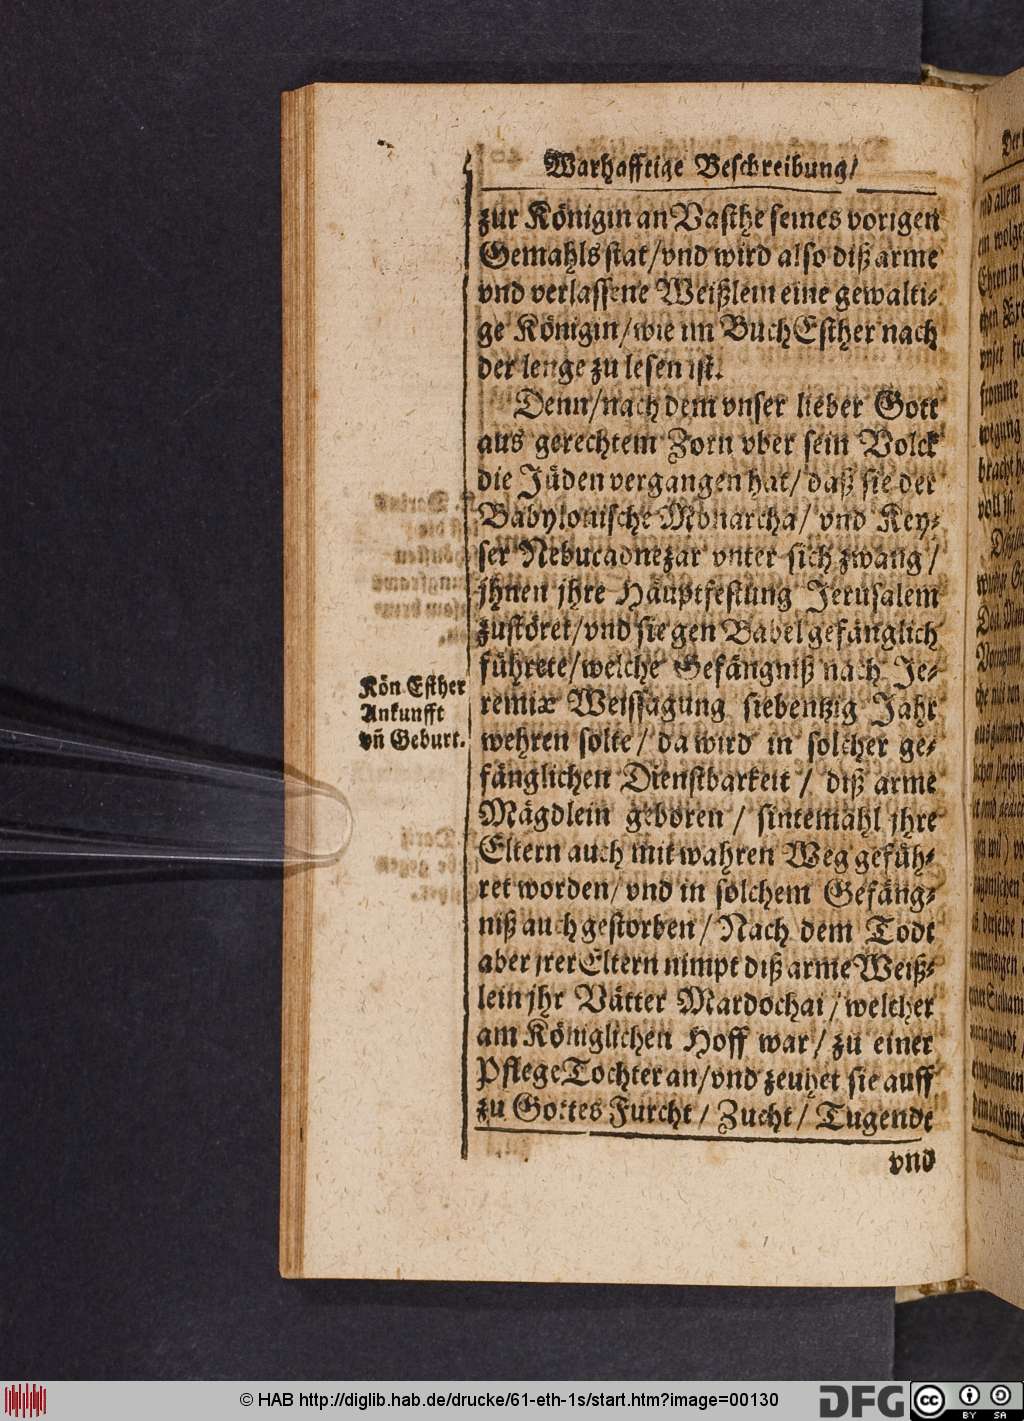 Warhafftige Beschreibung/
zur Königin an Vasthe seines vorigen
Gemahls stat/vnd wird also diß arme
vnd verlassene Weißlein eine gewalti-
ge Königin/wie im Buch Esther nach
der lenge zu lesen ist.
Denn/nach dem vnser lieber Gott
aus gerechtem Zorn vber sein Volck
die Jüden vergangen hat/daß sie der
Babylonische Monarcha/ vnd Key-
ser Nebucadnezar vnter sich zwang/
jhnen jhre Häuptfestung Jerusalem
zustöret/vnd sie gen Babel gefänglich
führete/welche Gefängniß nach Je-
remiæ Weissagung siebentzig Jahr
wehren solte/ da wird in solcher ge-
fänglichen Dienstbarkeit / diß arme
Mägdlein geboren / sintemahl jhre
Eltern auch mit wahren Weg gefüh-
ret worden/ vnd in solchem Gefäng-
niß auch gestorben/ Nach dem Todt
aber jrer Eltern nimpt diß arme Weiß-
lein jhr Vätter Mardochai/welcher
am Königlichen Hoff war/ zu einer
Pflege Tochter an/vnd zeuhet sie auff
zu Gottes Furcht/ Zucht/ Tugendt
vnd
Kön Esther
Ankunfft
vñ Geburt.
© HAB http://diglib.hab.de/drucke/61-eth-1s/start.htm?image=00130
DFG
cc
BY SA